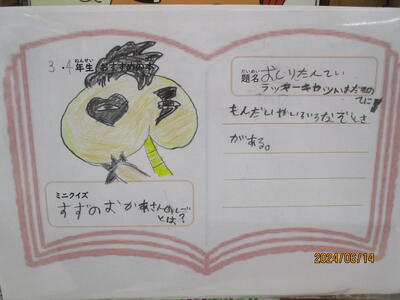 3・4年生 おすすめの本
ねんせい
ミニクイズ
すずのおかあさんの
とは?
だいめい
題名 おしりたんてい
ラッキーキャットはだれの
てに!
もんだいやいろいろなぞとき
がある。
2024/06/14